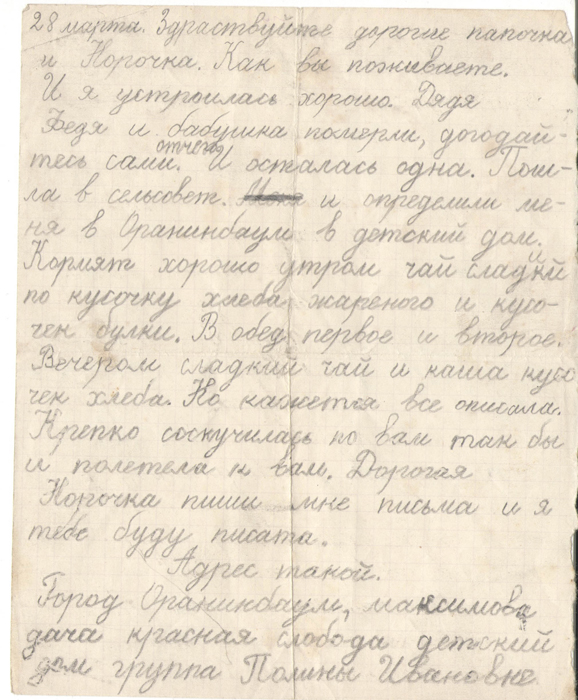 28 марта. Здраствуйте дорогие папочка
и Норочка. Как вы поживаете.
И я устроилась хорошо. Дядя
Федя и бабушка померли, догодай-
тесь сами. отчего И осталась одна. Пош-
ла в сельсовет. и определили ме-
ня в Оранинбаум в детский дом.
Кормят хорошо утром чай сладкий
по кусочку хлеба жареного и кусо-
чек булки. В обед первое и второе.
Вечером сладкий чай и каша кусо
чек хлеба. Но кажется все описала.
Крепко соскучилась по вам так бы
и полетела к вам. Дорогая
Норочка пиши мне письма и я
тебе буду писата.
Адрес такой.
Город Оранинбаум, максимова
дача красная слобода детский
дом группа Полины Ивановне